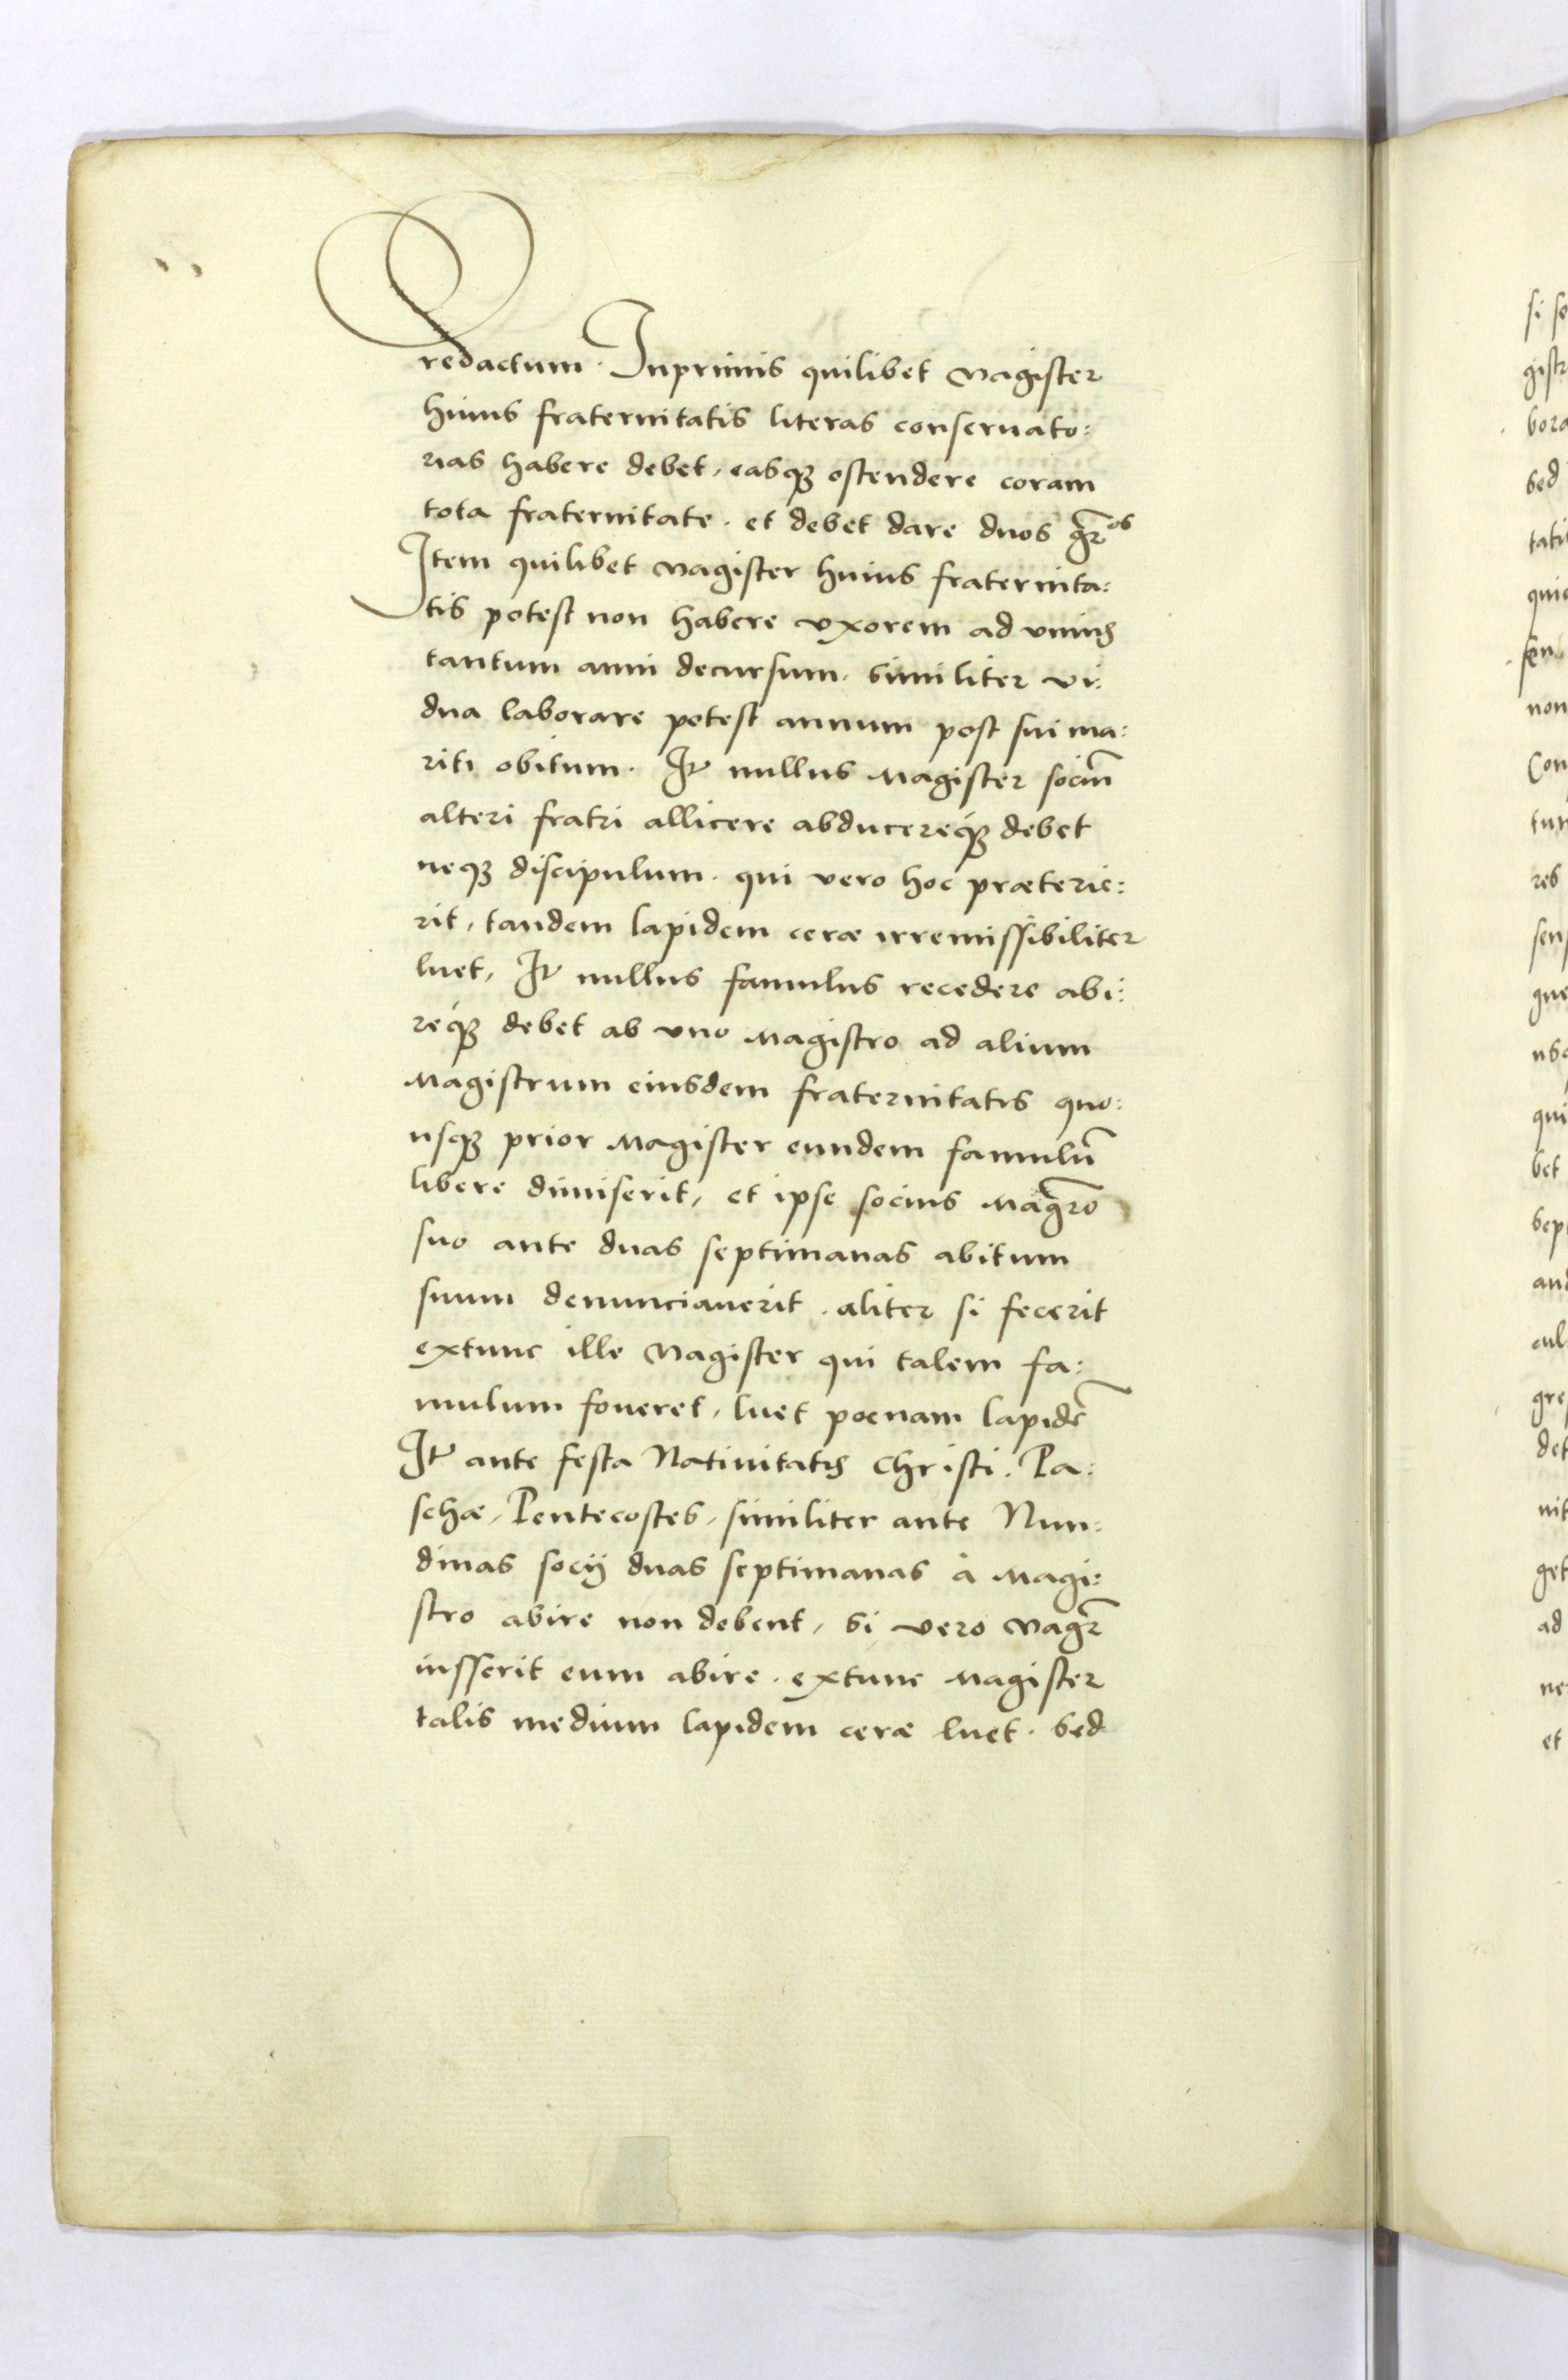 redactum. Inprimis quilibet Magister
huius fraternitatis literas conseruato:
rias habere debet, easq₃ ostendere coram
tota fraternitate. et debet dare duos gr̄os
Item quilibet Magister huius fraternita:
tis potest non habere vxorem ad vnius
tantum anni decursum. Similiter vi:
dua laborare potest annum post sui ma:
riti obitum. It nullus Magister sociū
alteri fratri allicere abducereq́₃ debet
neq₃ discipulum. qui vero hoc præterie:
rit, tandem lapidem ceræ irremissibiliter
luet, It nullus famulus recedere abi:
req́₃ debet ab vno Magistro ad alium
Magistrum eiusdem fraternitatis quo:
usq₃ prior Magister eundem famulū
libere dimiserit, et ipse socius Magr̄o
suo ante duas septimanas abitum
suum denunciauerit. aliter si fecerit
extunc ille Magister qui talem fa:
mulum foueret, luet poenam lapidē
It ante festa Natiuitatis Christi. Pa:
schæ, Pentecostes, similiter ante Nun:
dinas socij duas septimanas à Magi:
stro abire non debent, Si vero Magr̄
iusserit eum abire. extunc Magister
talis medium lapidem ceræ luet. Sed
si se
gistr
bora
sed
tati
quic
sen
non
Con
tun
res
sen
que
usq
qui
bet
sep
and
cul
gre
det
nit
get
ad
ne
et